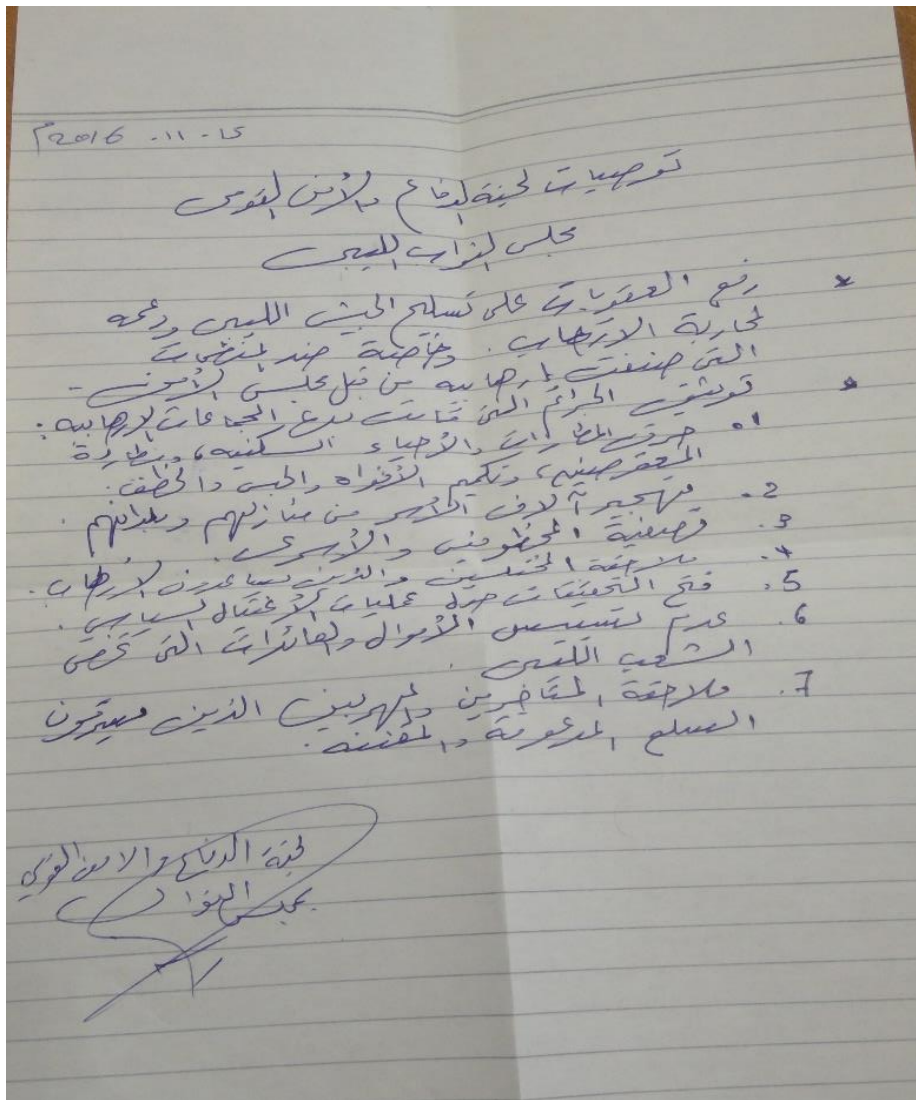 2016 - 11 - 15م
توصيات لجنة الدفاع والأمن القومى
مجلس النواب الليبى
* رفع العقوبات على تسليح الجيش الليبى ودعمه
لمحاربة الارهاب. وخاصة ضد المنظمات
التى صنفت إرهابيه من قبل مجلس الأمن -
* توثيق الجرائم التى قامت بها الجماعات الإرهابيه :
1. حرق المطارات والأحياء السكنيه، ومطاردة
المعترضين، وتكميم الأفواه والحبس والخطف.
2. تهجير آلاف الأسر من منازلهم وبلدانهم.
3. تصفية المخطوفين والأسرى.
4. ملاحقة المختلسين والذين يساعدون الإرهاب.
5. فتح التحقيقات حول عمليات الاغتيال السياسى.
6. عدم تسييس الأموال والعائدات التى تخص
الشعب الليبى.
7. ملاحقة المتاجرين والمهربين الذين يسرقون
السلع المدعومة والمقننه.
لجنة الدفاع والامن القومي
بمجلس النواب